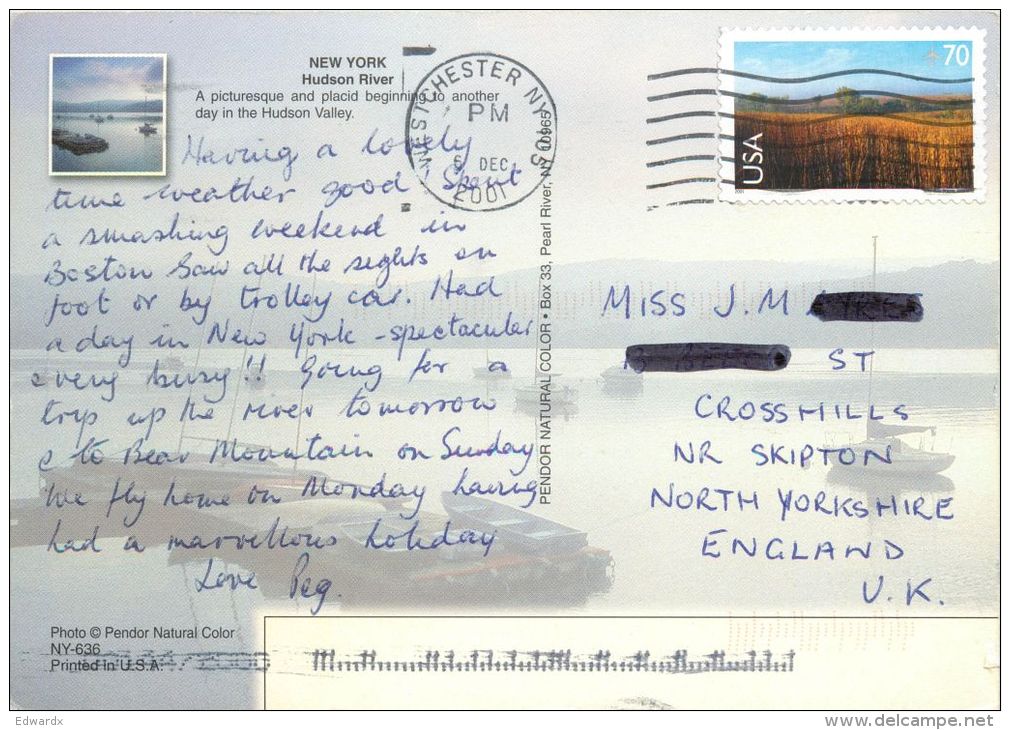 NEW YORK
Hudson River
A picturesque and placid beginning to another
day in the Hudson Valley.
Having a lovely
time weather good Spent
a smashing weekend in
Boston Saw all the sights on
foot or by trolley car. Had
a day in New York - spectacular
& very busy!! Going for a
trip up the river tomorrow
& to Bear Mountain on Sunday
We fly home on Monday having
had a marvellous holiday
Love Peg.
Photo © Pendor Natural Color
NY-636
Printed in U.S.A.
WESTCHESTER NY 105
PM
6 DEC
2001
PENDOR NATURAL COLOR • Box 33, Pearl River, NY 10965
70
USA
2001
MISS J. M
ST
CROSSHILLS
NR SKIPTON
NORTH YORKSHIRE
ENGLAND
U.K.
Edwardx
www.delcampe.net